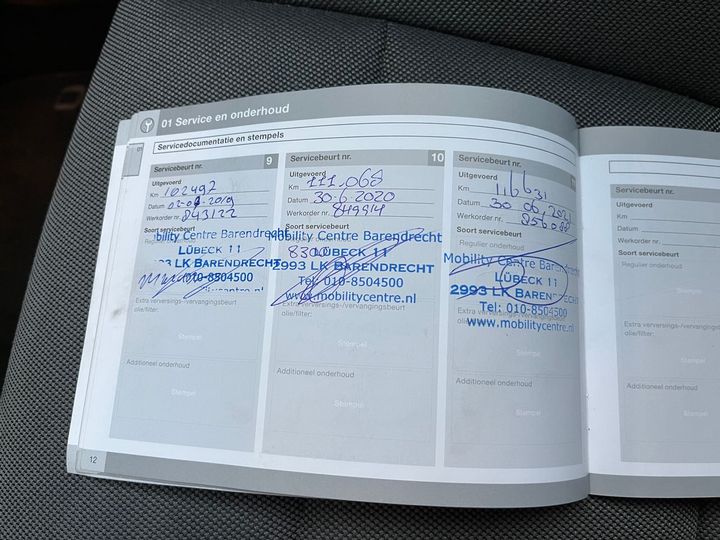 01 Service en onderhoud
Servicedocumentatie en stempels
Servicebeurt nr. 9
Uitgevoerd
Km 102492
Datum 2019
Werkorder nr. 843122
Soort servicebeurt
bility Centre Barendrecht
LÜBECK 11
LK BARENDRECHT
010-8504500
Extra verversings-/vervangingsbeurt
olie/filter:
Stempel
Additioneel onderhoud
Stempel
12
Servicebeurt nr. 10
Uitgevoerd
Km 111.068
Datum 30-6-2020
Werkorder nr. 849914
Soort servicebeurt
Mobility Centre Barendrecht
LÜBECK 11
2993 LK BARENDRECHT
Tel: 010-8504500
www.mobilitycentre.nl
Extra verversings-/vervangingsbeurt
olie/filter:
Stempel
Additioneel onderhoud
Stempel
Servicebeurt nr.
Uitgevoerd
Km 116631
Datum 30 06, 2021
Werkorder nr.
Soort servicebeurt
Regulier onderhoud
Mobility Centre Bar
LÜBECK 11
2993 LK BARENDRECHT
Tel: 010-8504500
www.mobilitycentre.nl
olie/filter:
Stempel
Additioneel onderhoud
Stempel
Servicebeurt nr.
Uitgevoerd
Km
Datum
Werkorder nr.
Soort servicebeurt
Regulier onderhoud
Extra verversings-/ve
olie/filter:
Additioneel onderhoud